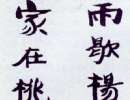 雨歇楊
家在桃